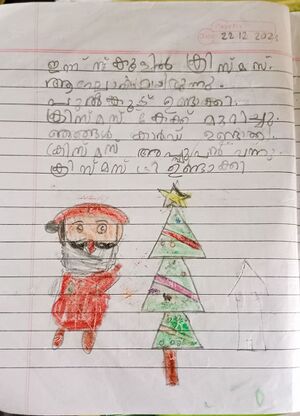 22 12 2023
ഇന്ന് സ്കൂളിൽ ക്രിസ്മസ്
ആഘോഷമായിരുന്നു.
പുൽക്കൂട് ഉണ്ടാക്കി.
ക്രിസ്മസ് കേക്ക് മുറിച്ചു.
ഞങ്ങൾ കാർഡ് ഉണ്ടാക്കി.
ക്രിസ്മസ് അപ്പൂപ്പൻ വന്നു.
ക്രിസ്മസ് ട്രീ ഉണ്ടാക്കി